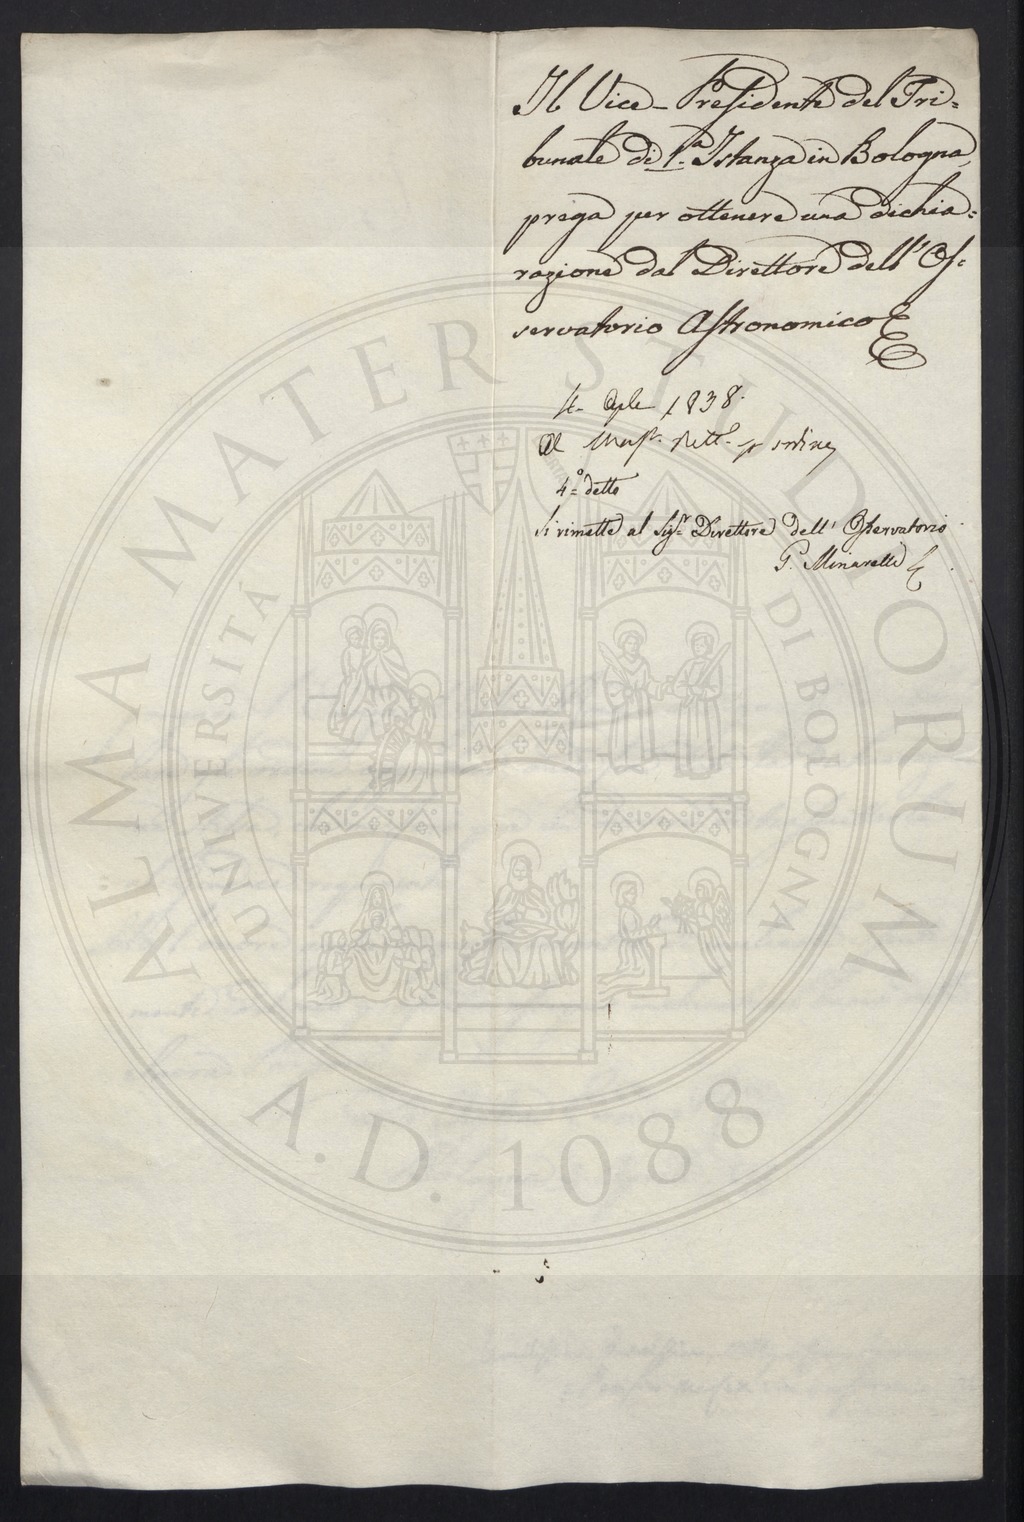 Il Vice-Presidente del Tri=
bunale di 1.a Istanza in Bologna,
prega per ottenere una dichia=
razione dal Direttore dell' Os=
servatorio Astronomico
Aple 1838.
Al
4.° detto
Si rimette al Sigr. Direttore dell' Osservatorio
G. Minarelli
ALMA MATER STUDIORUM
UNIVERSITÁ DI BOLOGNA
A.D. 1088